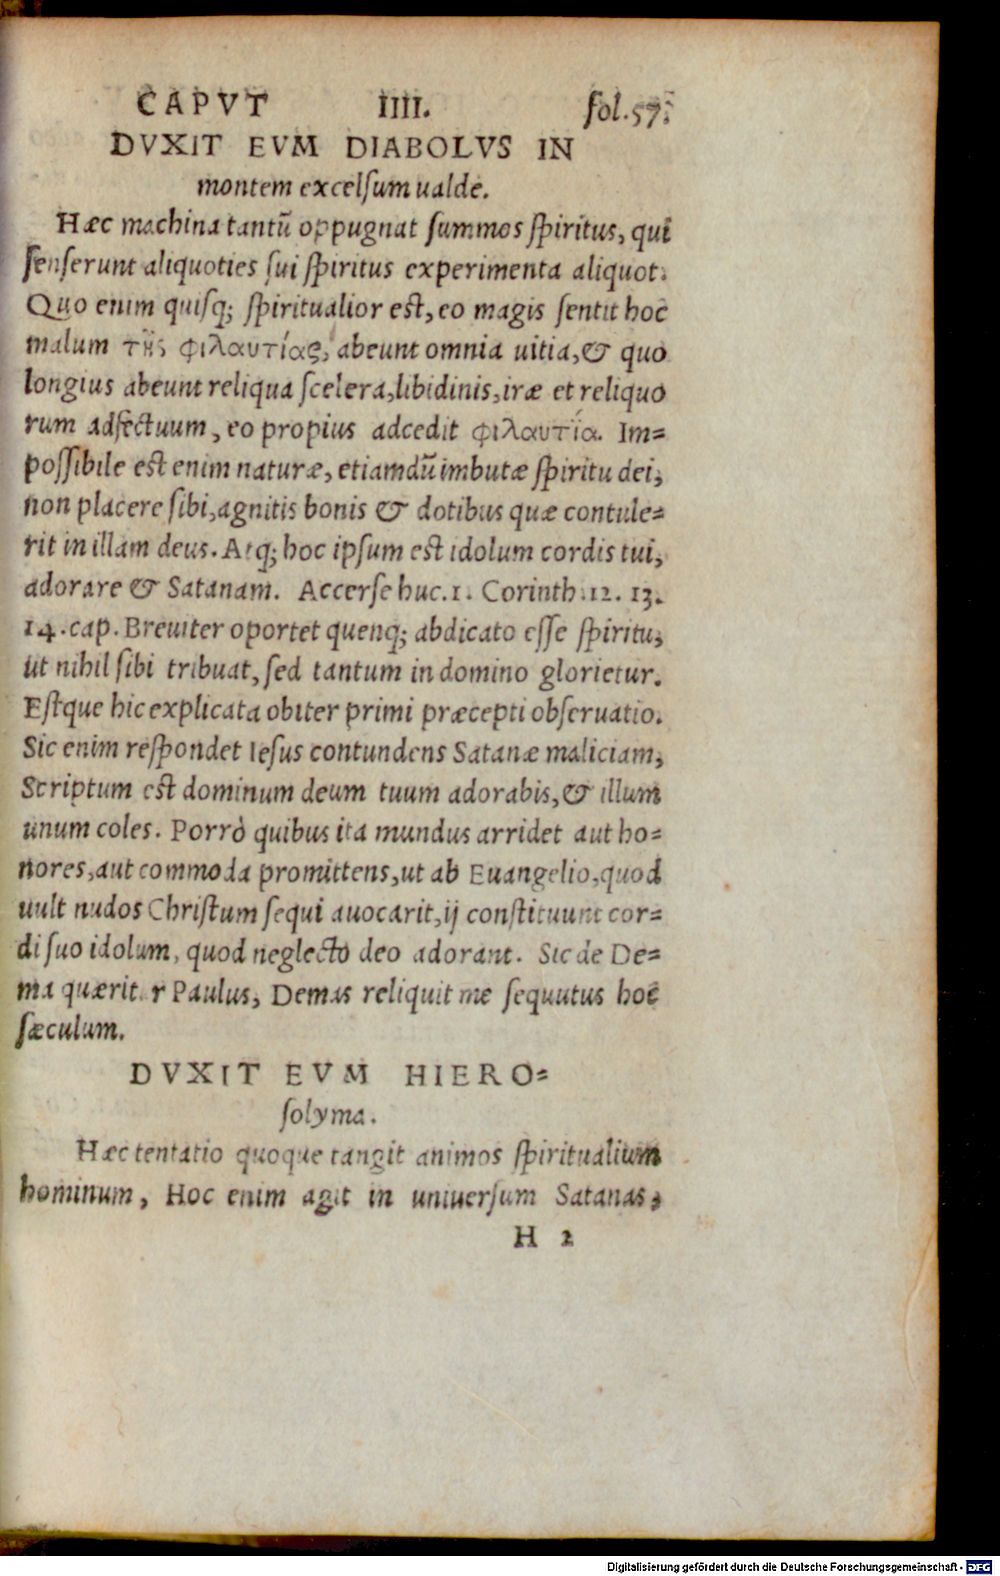 CAPVT IIII. fol.57.
DVXIT EVM DIABOLVS IN
montem excelsum ualde.
Hæc machina tantũ oppugnat summos spiritus, qui
senserunt aliquoties sui spiritus experimenta aliquot.
Quo enim quisq; spiritualior est, eo magis sentit hoc
malum τῆς φιλαυτίας, abeunt omnia uitia, & quo
longius abeunt reliqua scelera, libidinis, iræ et reliquo
rum adfectuum, eo propius adcedit φιλαυτία. Im=
possibile est enim naturæ, etiamdũ imbutæ spiritu dei,
non placere sibi, agnitis bonis & dotibus quæ contule=
rit in illam deus. Atq; hoc ipsum est idolum cordis tui,
adorare & Satanam. Accerse huc. 1. Corinth. 12. 13.
14. cap. Breuiter oportet quenq; abdicato esse spiritu,
ut nihil sibi tribuat, sed tantum in domino glorietur.
Estque hic explicata obiter primi præcepti obseruatio.
Sic enim respondet Iesus contundens Satanæ maliciam,
Scriptum est dominum deum tuum adorabis, & illum
unum coles. Porrò quibus ita mundus arridet aut ho=
nores, aut commoda promittens, ut ab Euangelio, quod
uult nudos Christum sequi auocarit, ij constituunt cor=
di suo idolum, quod neglecto deo adorant. Sic de De=
ma quæritur Paulus, Demas reliquit me sequutus hoc
sæculum.
DVXIT EVM HIERO=
solyma.
Hæc tentatio quoque tangit animos spiritualium
hominum, Hoc enim agit in uniuersum Satanas,
H 2
Digitalisierung gefördert durch die Deutsche Forschungsgemeinschaft - DFG